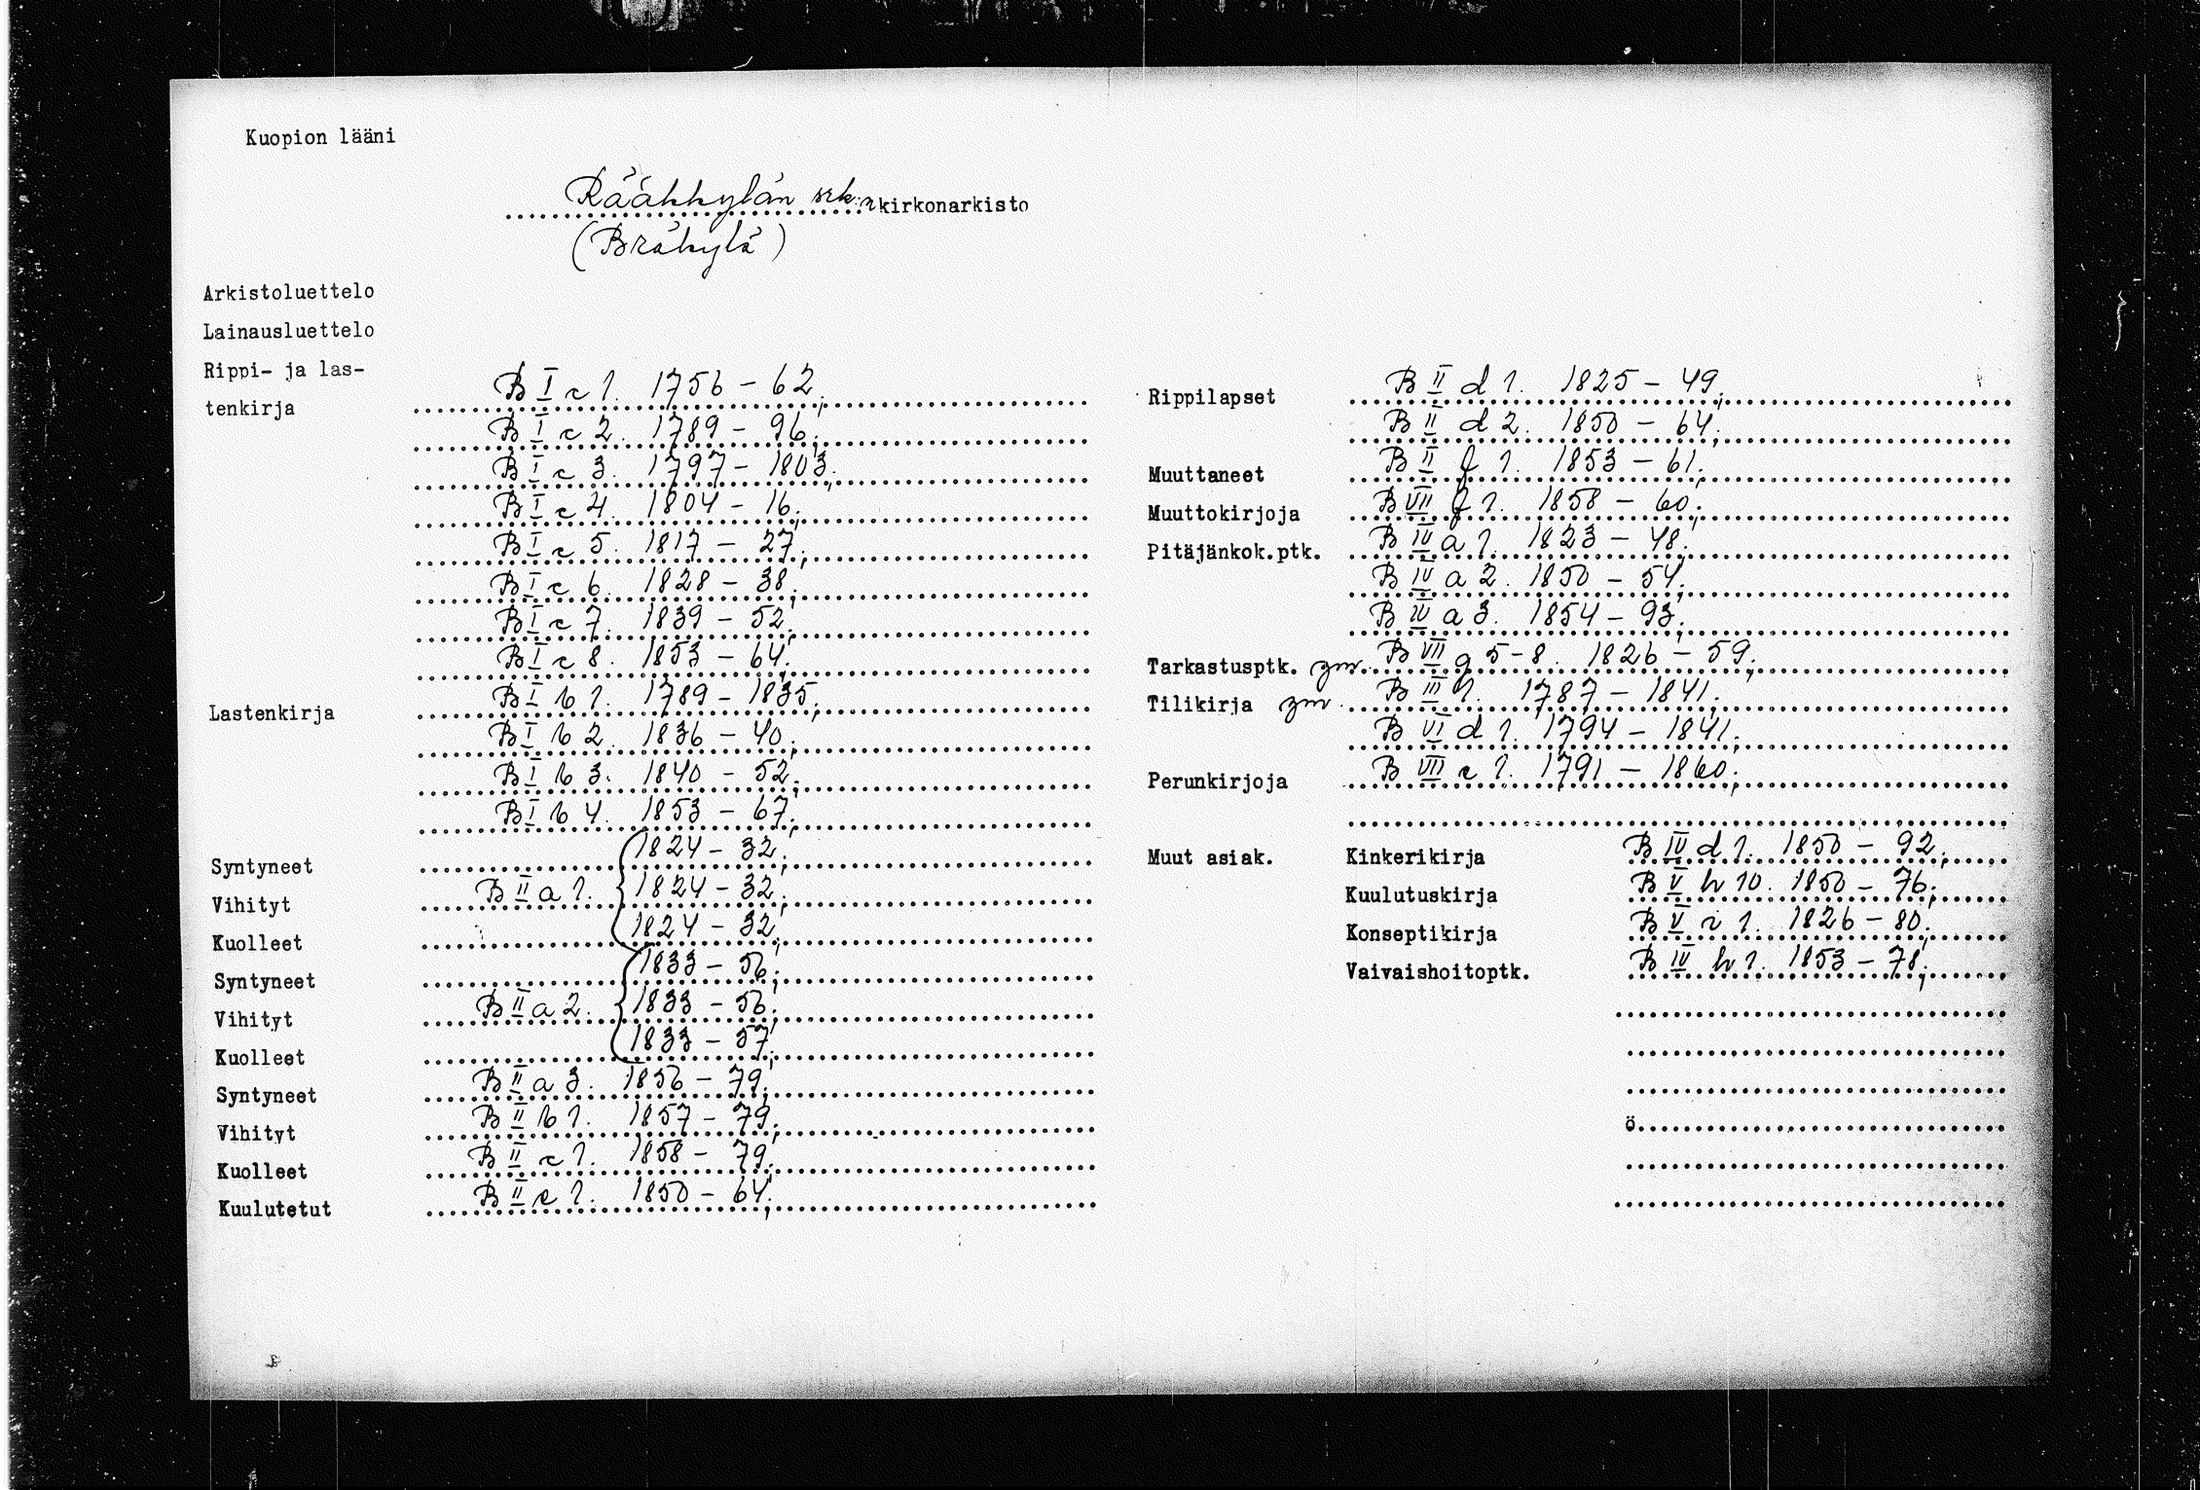 Kuopion lääni
Rääkkylän srk:n kirkonarkisto
(Bräkylä)
Arkistoluettelo
Lainausluettelo
Rippi- ja las-
tenkirja B I c 1. 1756 - 62;
B I c 2. 1789 - 96;
B I c 3. 1797 - 1803;
B I c 4. 1804 - 16;
B I c 5. 1817 - 27;
B I c 6. 1828 - 38;
B I c 7. 1839 - 52;
B I c 8. 1853 - 64;
Lastenkirja B I b 1. 1789 - 1835;
B I b 2. 1836 - 40;
B I b 3. 1840 - 52;
B I b 4. 1853 - 67;
Syntyneet 1824 - 32;
Vihityt B II a 1. 1824 - 32;
Kuolleet 1824 - 32;
Syntyneet 1833 - 56;
Vihityt B II a 2. 1833 - 56;
Kuolleet 1833 - 57;
Syntyneet B II a 3. 1856 - 79;
Vihityt B II b 1. 1857 - 79;
Kuolleet B II c 1. 1858 - 79;
Kuulutetut B II e 1. 1850 - 64;
Rippilapset B II d 1. 1825 - 49;
B II d 2. 1850 - 64;
Muuttaneet B II f 1. 1853 - 61;
Muuttokirjoja B VII f 1. 1858 - 60;
Pitäjänkok.ptk. B IV a 1. 1823 - 48;
B IV a 2. 1850 - 54;
B IV a 3. 1854 - 93;
Tarkastusptk. ym. B VII g 5-8. 1826 - 59;
Tilikirja ym. B III 1. 1787 - 1841;
B VI d 1. 1794 - 1841;
Perunkirjoja B VIII c 1. 1791 - 1860;
Muut asiak. Kinkerikirja B IV d 1. 1850 - 92;
Kuulutuskirja B V h 10. 1850 - 76;
Konseptikirja B V i 1. 1826 - 80;
Vaivaishoitoptk. B IV h 1. 1853 - 78;
ö